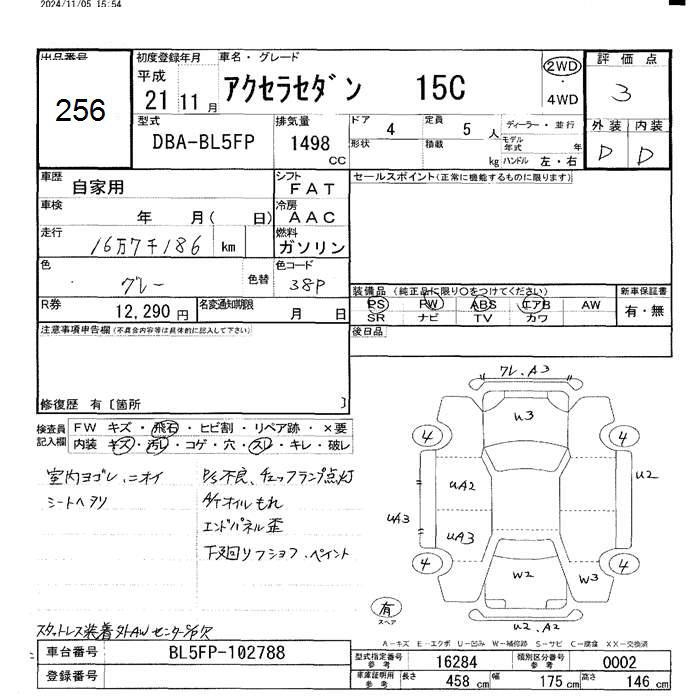 2024/11/05 15:54
出品番号 初度登録年月 車名・グレード 2WD ・ 4WD 評価点
256 平成 21 11月 アクセラセダン 15C 3
型式 DBA-BL5FP 排気量 1498 CC
ドア 4 定員 5 人 ディーラー・並行 外装 内装
形状 積載 kg モデル年式 年 ハンドル 左・右 D D
車歴 自家用 シフト FAT セールスポイント(正常に機能するものに限ります)
車検 年 月( 日) 冷房 AAC
走行 16万7千186 km 燃料 ガソリン
色 グレー 色替 色コード 38P
装備品 (純正品に限り○をつけてください) 新車保証書
PS PW ABS エアB AW 有・無
SR ナビ TV カワ
R券 12,290円 名変通知期限 月 日
後日品
注意事項申告欄(不具合内容等は具体的に記入して下さい)
修復歴 有〔箇所 〕
検査員記入欄 FW キズ・飛石・ヒビ割・リペア跡・×要
内装 キズ・汚レ・コゲ・穴・スレ・キレ・破レ
室内ヨゴレ、ニオイ P/S不良、チェックランプ点灯
シートヘタリ A/Tオイルもれ
エンドパネル歪
下廻りフショク、ペイント
ワレ、A3
W3
4 4
UA2 U2
UA3 UA3
4 4
W2 W3
有 スペア
U2、A2
スタットレス装着外AWセンターC/P欠
A-キズ E-エクボ U-凹み W-補修跡 S-サビ C-腐食 XX-交換済
車台番号 BL5FP-102788
登録番号
型式指定番号 参考 16284 類別区分番号 参考 0002
車庫証明用 参考 長さ 458 cm 幅 175 cm 高さ 146 cm